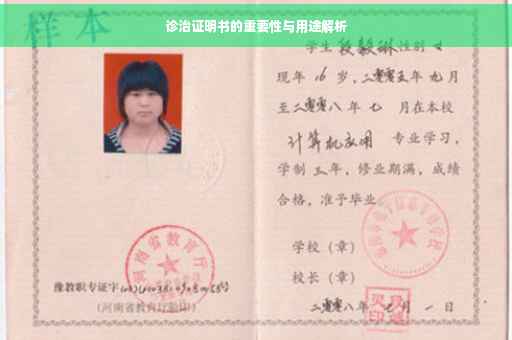 诊治证明书的重要性与用途解析
样本
学生段毅琳性别女
现年16岁,二零零五年九月
至二零零八年七月在本校
计算机应用 专业学习,
学制三年,修业期满,成绩
合格,准予毕业
学校(章)
校长(章)
二零零八年七月一日
河南省教育厅
豫教职专证字
(河南省教育厅验印)